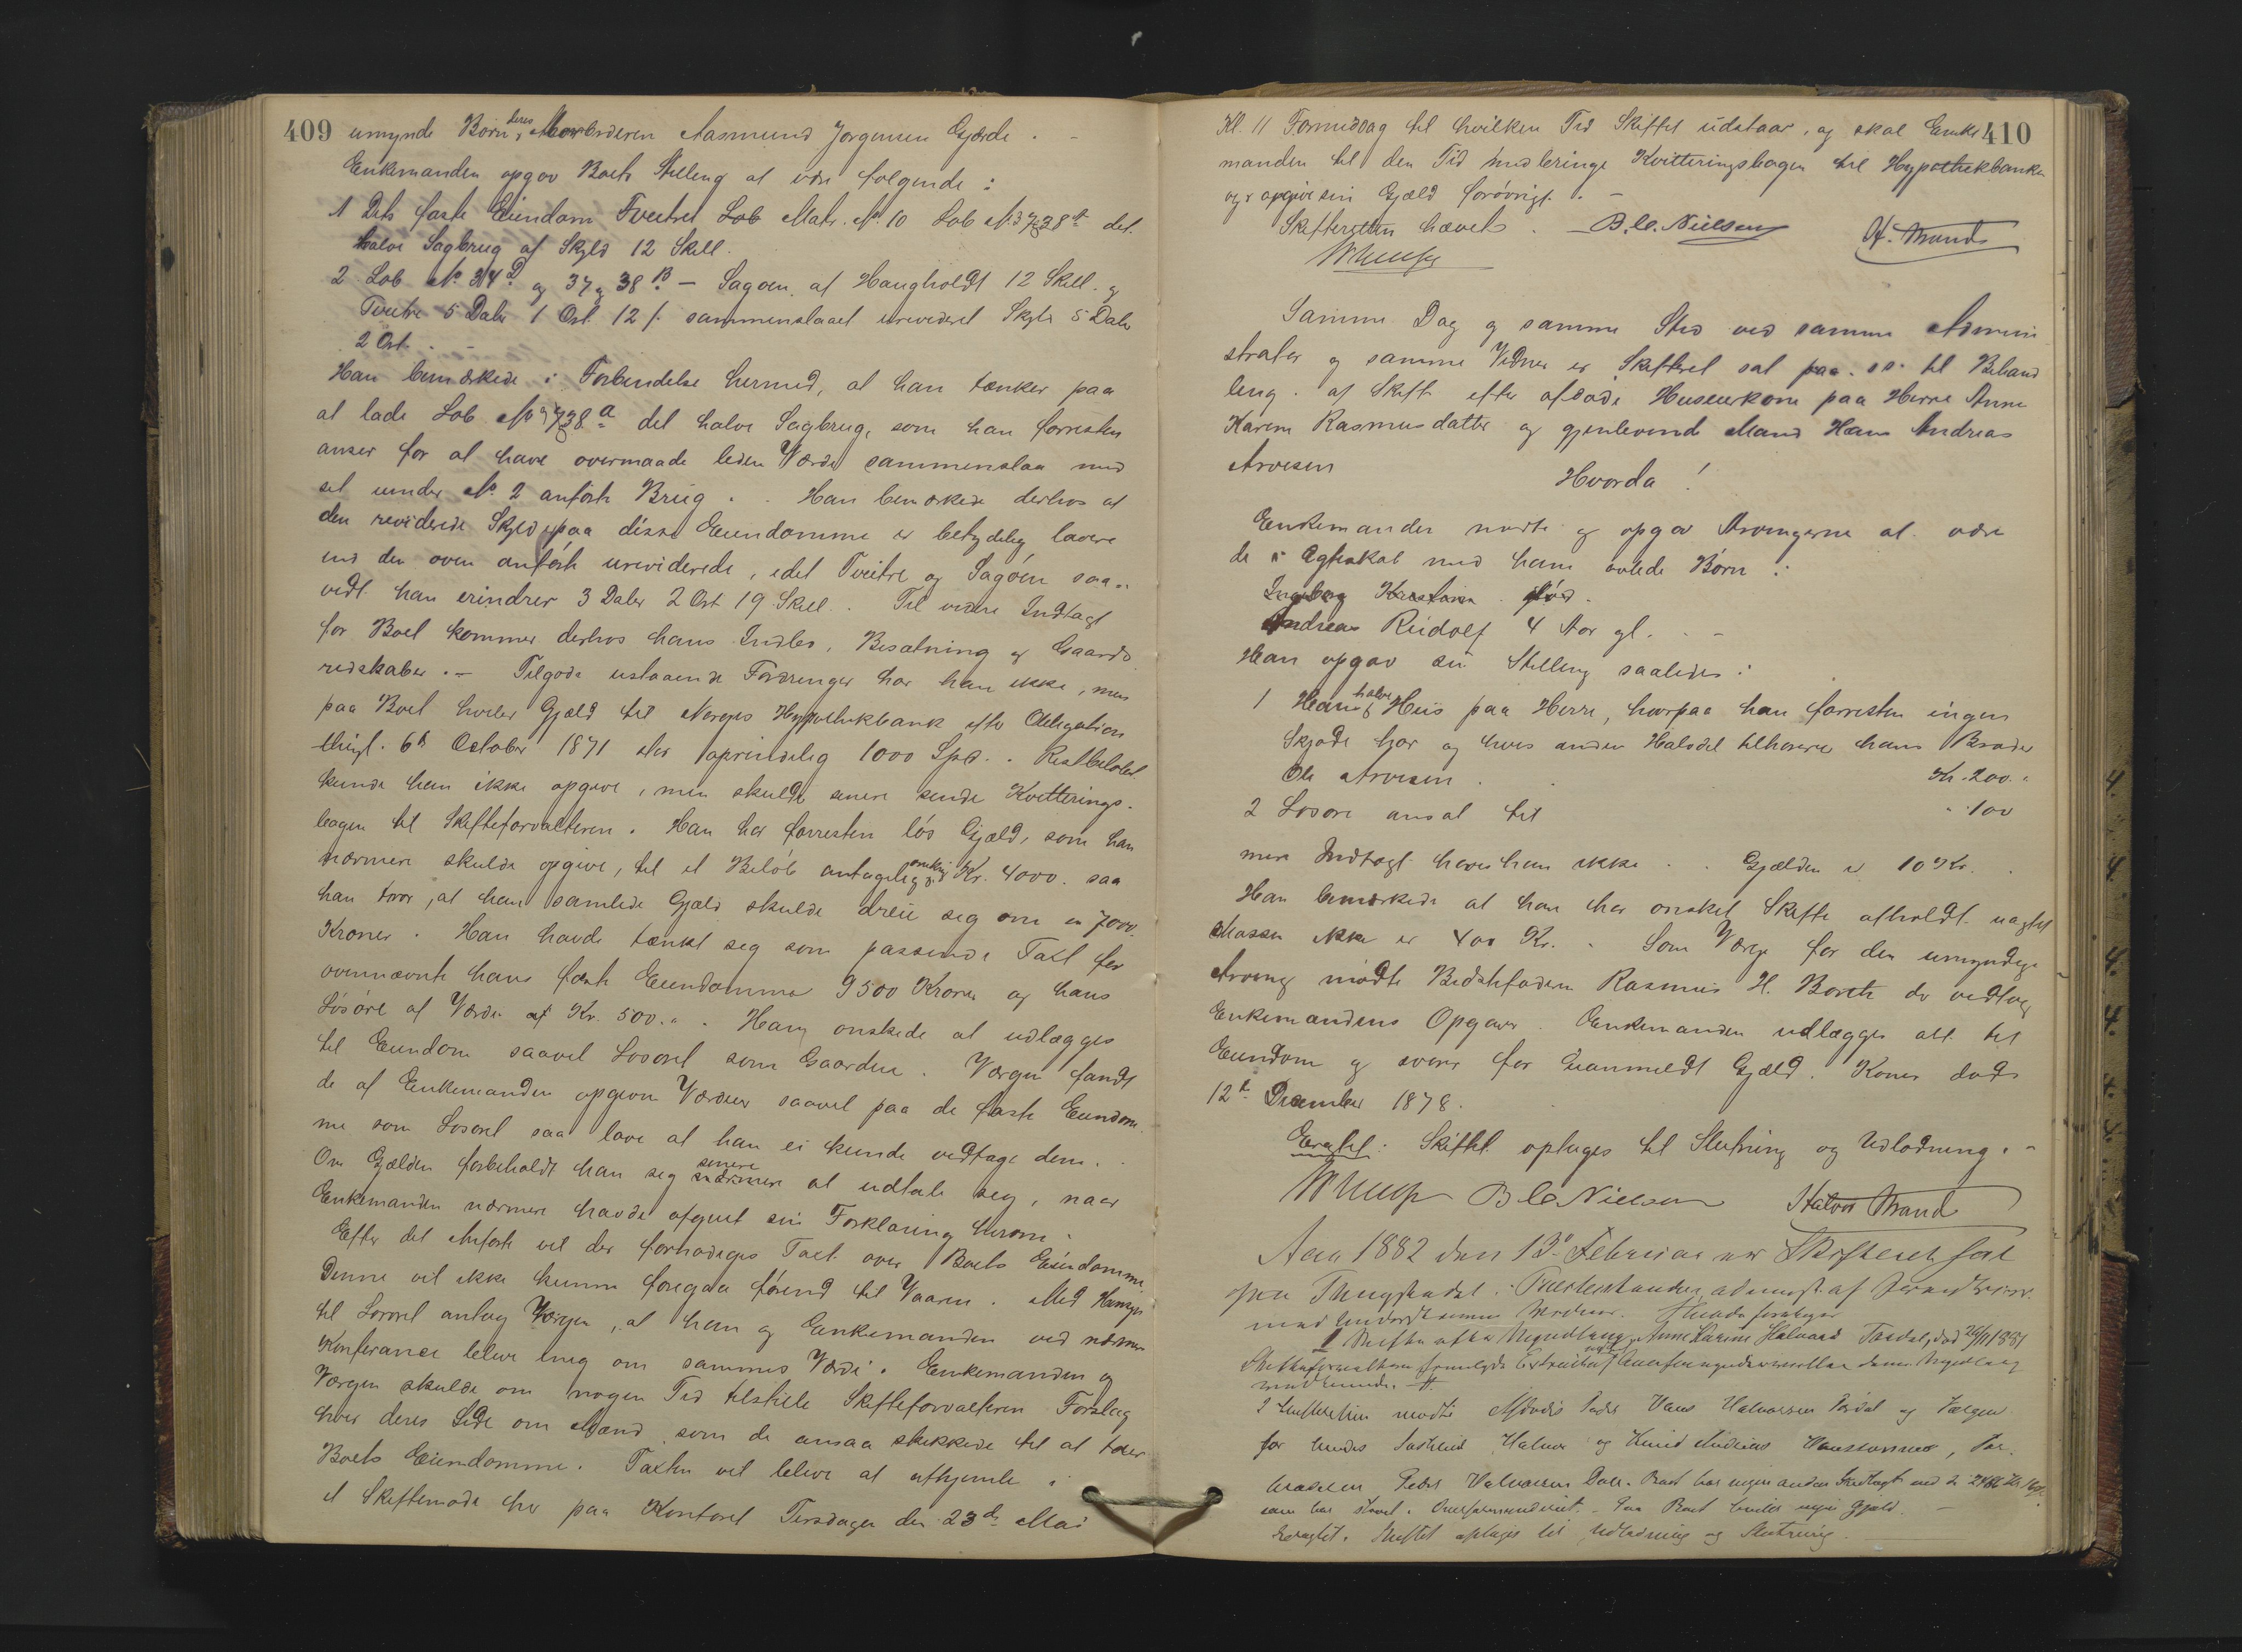 409 umynde Børn, deres Morbroderen Aasmund Jørgensen Gjærde. –
Enkemanden opgav Boets Stilling at være følgende:
1 Dets faste Eiendom Tveitre Matr. No 10 Løb No 37 og 38 a det
halve Sagbrug af Skyld 12 Skill.
2 Løb No 34 og 37 og 38 B – Sagøen af Haugholdt 12 Skill. og
Tveitre 5 Daler 1 Ort 12 s. sammenslaaet urevideret Skyld 5 Daler
2 Ort. –
Han bemærkede i Forbindelse hermed, at han tænker paa
at lade Løb No 37 og 38 a det halve Sagbrug, som han forresten
anser for at have overmaade liden Værdi sammenslaa med
det under No 2 anførte Brug. Han bemærkede derhos at
den reviderede Skyld paa disse Eiendomme er betydelig lavere
end den oven anførte ureviderede, idet Tveitre og Sagøen saa-
vidt han erindrer 3 Daler 2 Ort 19 Skill. Til videre Indtægt
for Boet kommer derhos hans Indbo, Besætning og Gaards
redskaber. – Tilgode udstaaende Fordringer har han ikke, men
paa Boet hviler Gjæld til Norges Hypothekbank efter Obligation
thingl. 6te October 1871 stor oprindelig 1000 Spd. Restbeløbet
kunde han ikke opgive, men skulde senere sende Kvitterings-
bogen til Skifteforvalteren. Han har forresten løs Gjæld, som han
nærmere skulde opgive, til et Beløb antagelig omkring Kr. 4000. saa
han tror, at hans samlede Gjæld skulde dreie seg om en 7000.
Kroner. Han havde tænkt seg som passende Taxt for
ovennævnte hans faste Eiendomme 9500 Kroner og hans
Løsøre af Værdi af Kr. 500. Han ønskede at udlægges
til Eiendom saavel Løsøret som Gaarden. Værgen fandt
de af Enkemanden opgivne Værdier saavel paa de faste Eiendom-
me som Løsøret saa lave at han ei kunde vedtage dem.
Om Gjælden forbeholdt han seg senere at udtale seg, naar
Enkemanden nærmere havde afgivet sin Forklaring herom.
Efter det Anførte vil der fornødiges Taxt over Boets Eiendomme
Denne vil ikke kunne foregaa førend til Vaaren. Med Hensyn
til Løsøret antog Værgen, at han og Enkemanden ved nærmere
Konferance bleve enig om sammes Værdi. Enkemanden og
Værgen skulde om nogen Tid tilstille Skifteforvalteren Forslag
hver deres Side om Mænd som de ansaa skikkede til at taxere
Boets Eiendomme. Taxten vil blive at afhjemle i
et Skiftemøde her paa Kontoret Tirsdagen den 23de Mai
Kl. 11 Formiddag til hvilken Tid Skiftet udstaar, og skal Enke 410
manden til den Tid medbringe Kvitteringsbogen til Hypothekbanken
og opgive sin Gjæld forøvrigt. –
Skifteretten hævet. B. C. Nielsen H. Strand
Samme Dag og samme Sted ved samme Admini
strator og samme Vidner er Skifteret sat paa ss. til Behand
ling af Skifte efter afdøde Husmerkone paa Herre Anne
Karine Rasmusdatter og gjenlevende Mand Hans Andreas
Arvesen
Hvorda!
Enkemanden mødte og opgav Arvingerne at være
de i Ægteskab med ham avlede Børn:
Ingeborg Kristine død.
Andreas Rudolf 4 Aar gl. –
Han opgav sin Stilling saaledes:
1 Hans halve Hus paa Herre, hvorpaa han forresten ingen
Skjøde har og hvis anden Halvdel tilhører hans Broder
Ole Arvesen Kr. 200.
2 Løsøre ansat til " 100
mere Indtægt havde han ikke. Gjælden er 10 Kr.
Han bemærkede at han har ønsket Skifte afholdt uagtet
Massen ikke er 400 Kr. Som Værge for den umyndige
Arving mødte Bedstefaderen Rasmus H. der vedtog
Enkemandens Opgaver. Enkemanden udlægges alt til
Eiendom og svarer for uanmeldt Gjæld. Konen døde
12te December 1878.
Eragtet. Skiftet optages til Slutning og Udlodning. –
B C Nielsen Halvor Strand
Aar 1882 den 13de Februar er Skifteret sat
paa Thingstedet
med undertegnede Vidner. Hvorda foretages
1 Skifte efter Anne Karine Halvors Tordal, død 28/11 1881
2 Skifteretten mødte Afdødes Fader Hans Halvorsen Tordal og Værgen
for hendes Søskende Halvor og Knud Andreas Hanssønner, Far
broderen Peder Halvorsen Dale. Boet har ingen anden Indtægt end
som har staaet i Overformynderiet. – Paa Boet hviler ingen Gjæld. –
Eragtet. Skiftet optages til Udlodning og Slutning.